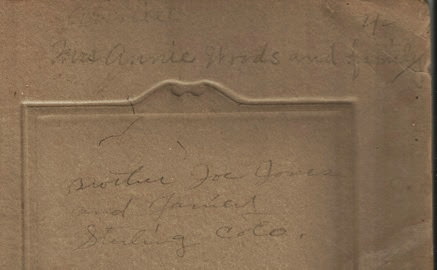 Mrs Annie Woods and family
mother Joe Jones
and
Sterling Colo.